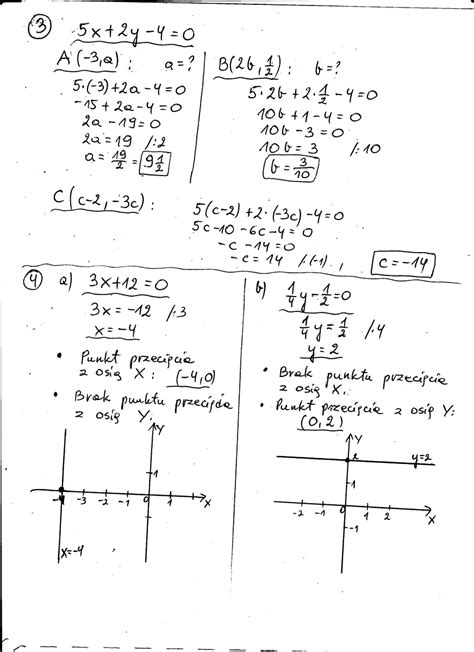 ③ 5x+2y-4=0
A(-3,a): a=?
5·(-3)+2a-4=0
-15+2a-4=0
2a-19=0
2a=19 /:2
a=19/2=9 1/2
B(2b,1/2): b=?
5·2b+2·1/2-4=0
10b+1-4=0
10b-3=0
10b=3 /:10
b=3/10
C(c-2,-3c):
5(c-2)+2·(-3c)-4=0
5c-10-6c-4=0
-c-14=0
-c=14 /·(-1),
c=-14
④ a) 3x+12=0
3x=-12 /:3
x=-4
• Punkt przecięcia
z osią X: (-4,0)
• Brak punktu przecięcia
z osią Y:
Y
1
-4 -3 -2 -1 0 1 X
x=-4
b) 1/4y-1/2=0
1/4y=1/2 /·4
y=2
• Brak punktu przecięcia
z osią X.
• Punkt przecięcia z osią Y:
(0,2)
Y
2 y=2
1
-2 -1 0 1 2 X
-1